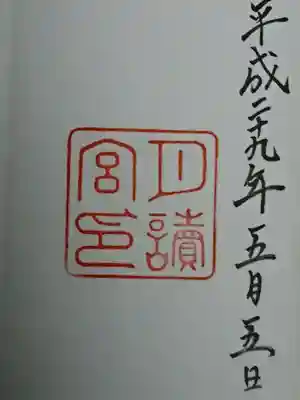 平成二十九年五月五日
月讀
宮印